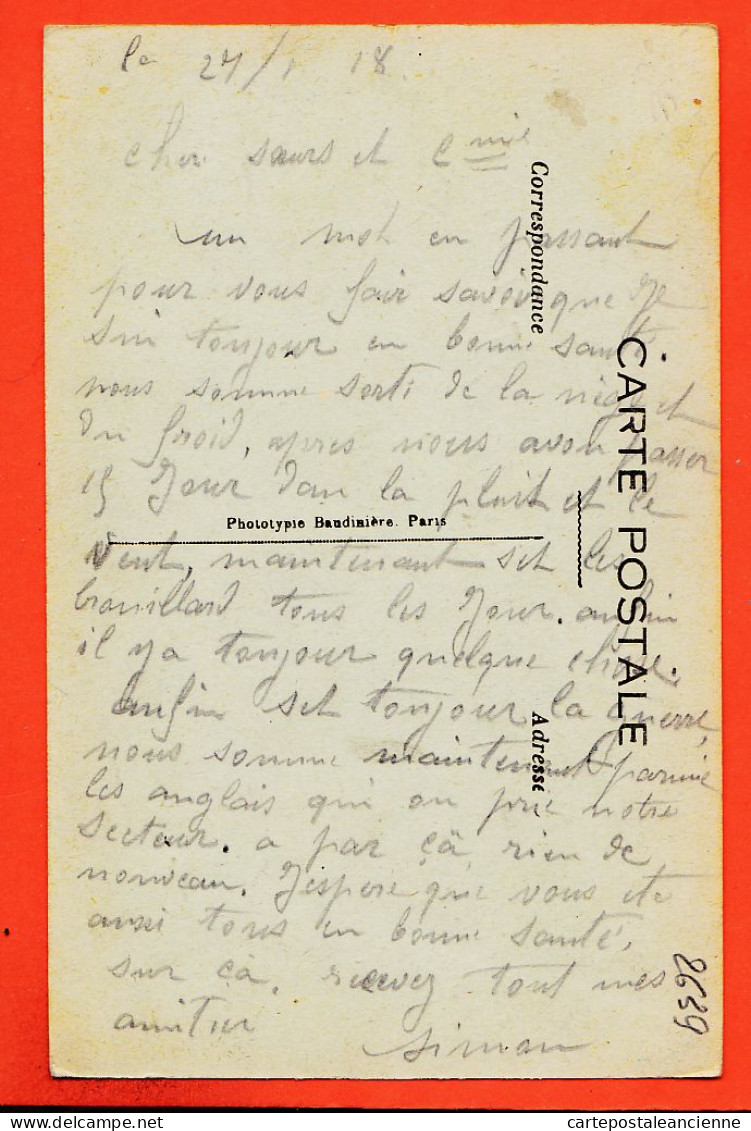 le 27/1 18.
cher sœurs et Cmie
un mot en passant
pour vous fair savoir que Je
sui toujour en bonne santé
nous somme sorti de la neige et
du froid, apres nous avon passer
15 Jour dan la pluit et le
vent, maintenant set les
brouillard tous les Jour. anfin
il y a toujour quelque chose.
anfin set toujour la guerre,
nous somme maintenant parmie
les anglais qui on prie notre
secteur. a par çà rien de
nouveau. J'espere que vous ete
aussi tous en bonne santé.
sur çà, recevez tout mes
amitier
Simon
Correspondance
CARTE POSTALE
Adresse
Phototypie Baudinière. Paris
2639
delcampe.net
cartepostaleancienne